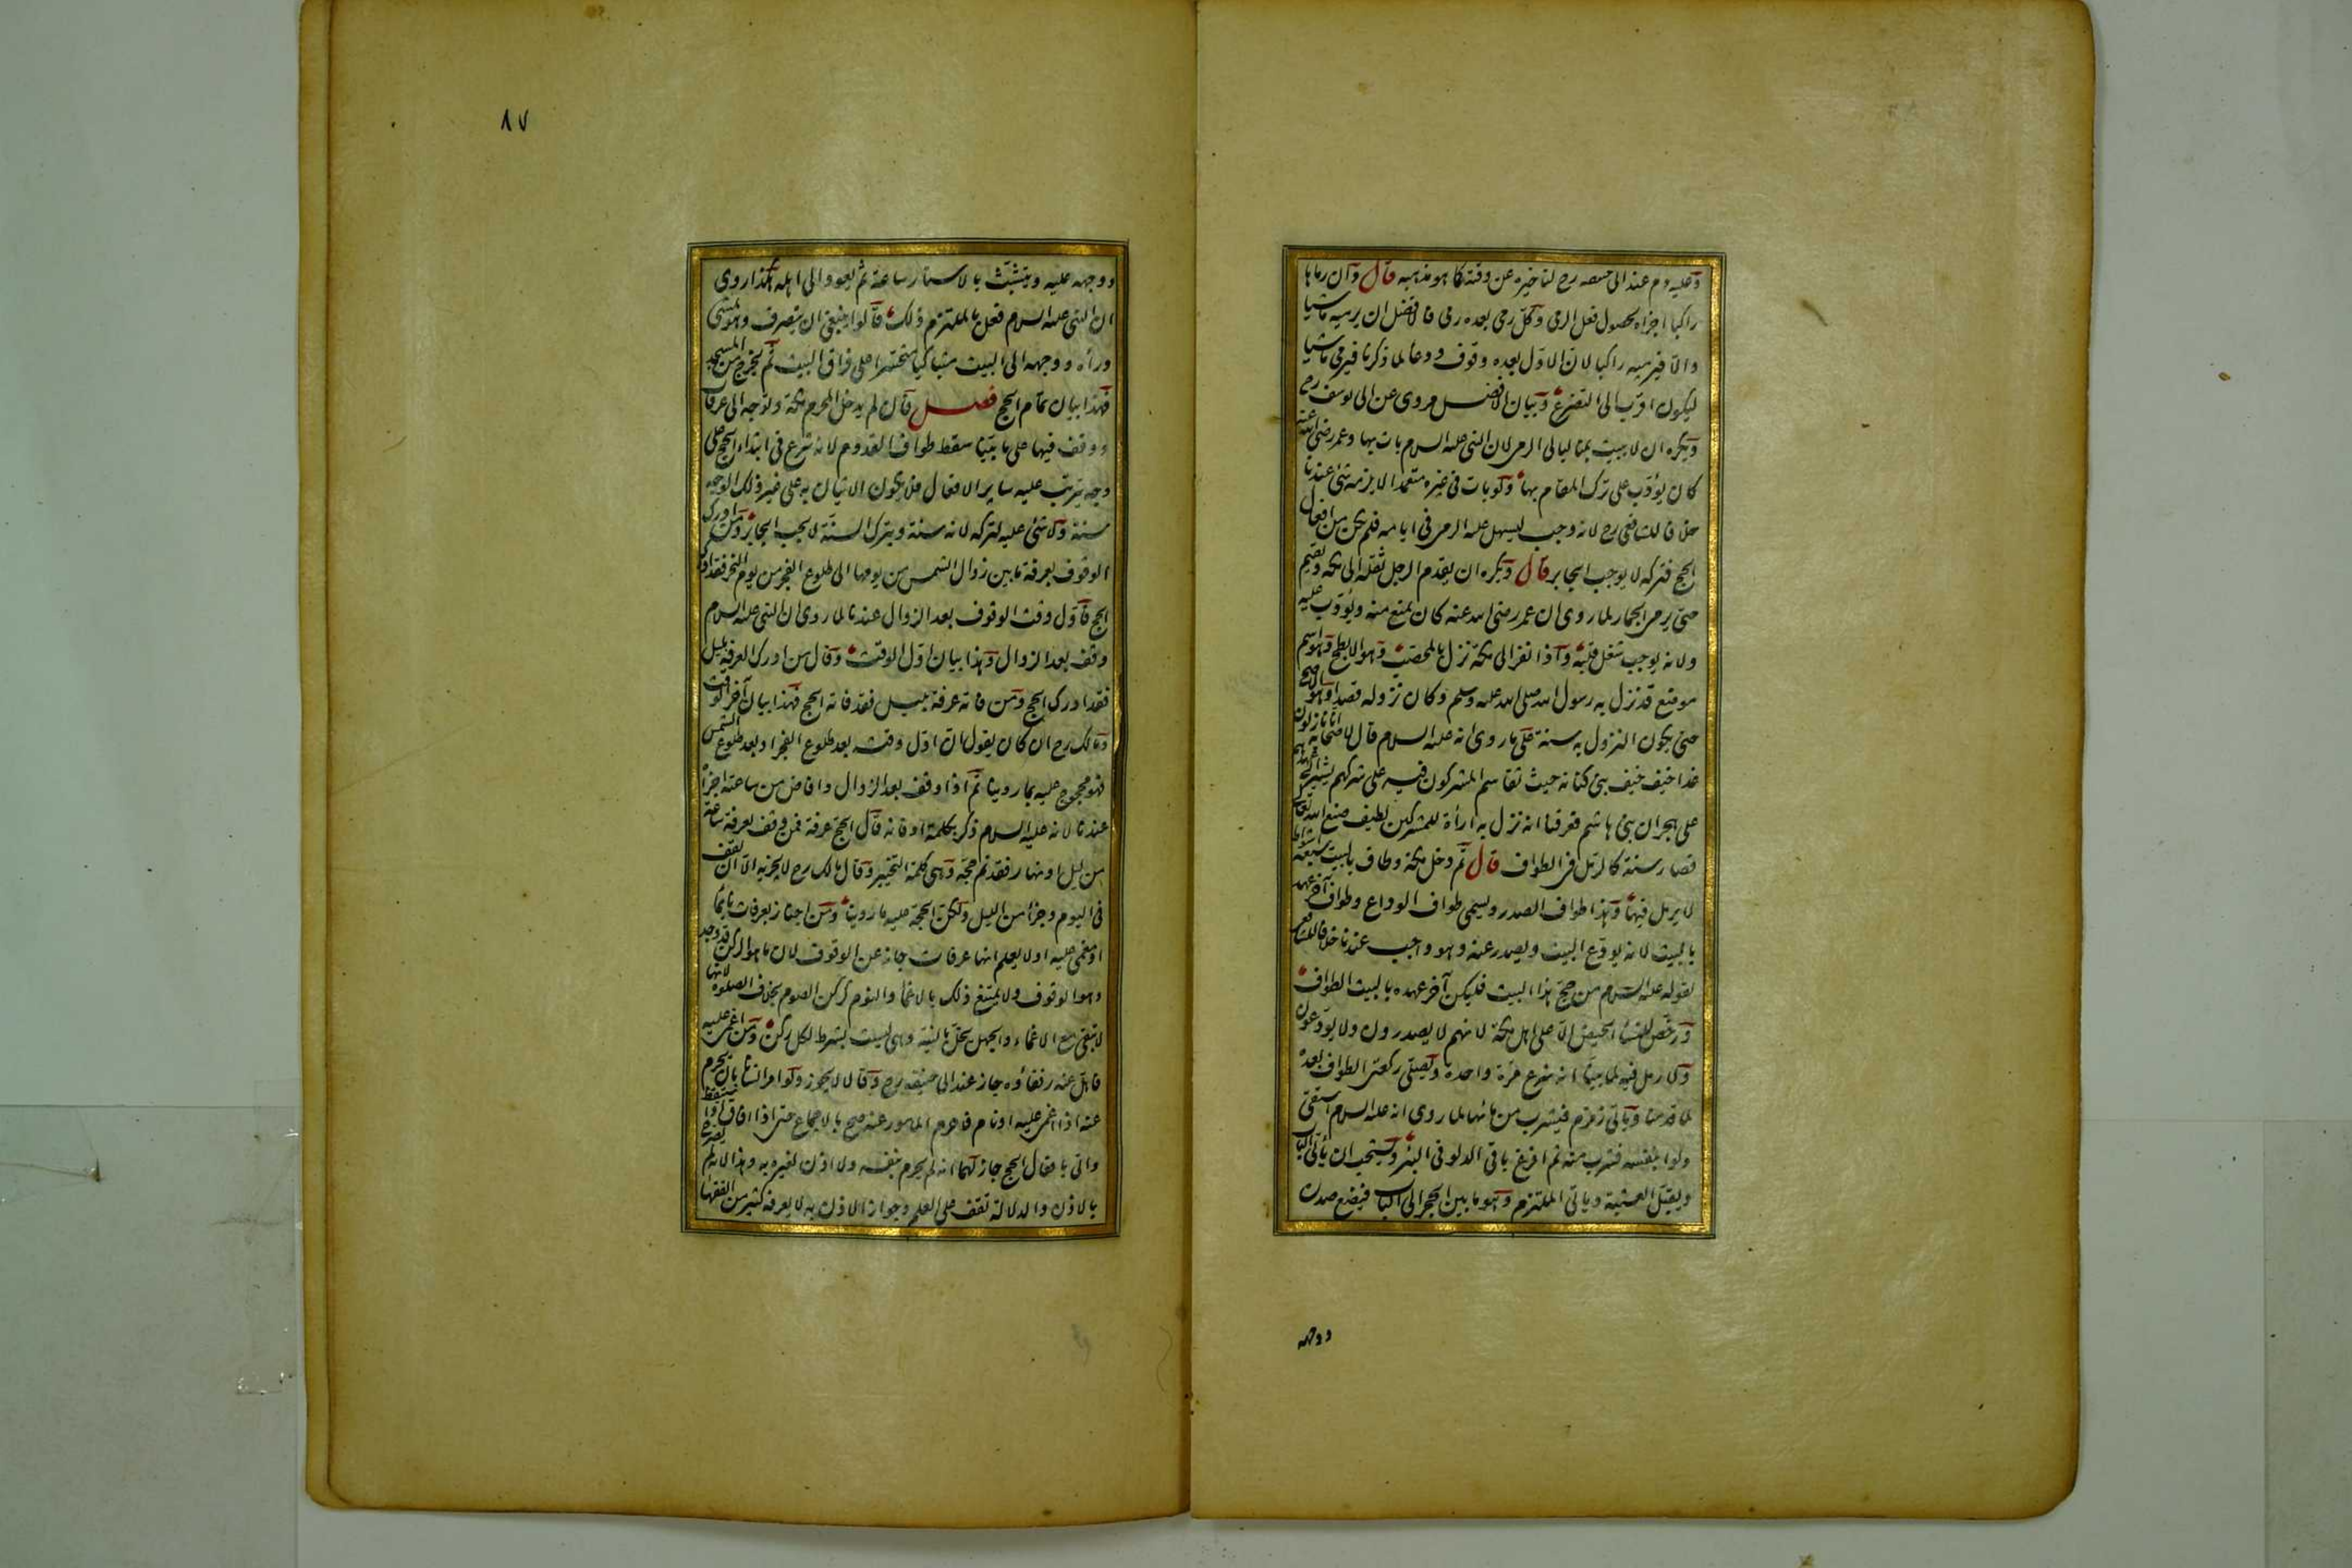 وعليه دم عند ابى حنيفه رح لتاخيره عن وقته كما هو مذهبه قال وان رماها
راكبا اجزاه لحصول فعل الرمى وكل رمى بعده رمى فالافضل ان يرميه ماشيا
والا فيرميه راكبا لان الاول بعده وقوف ودعا لما ذكرنا فيرمى ماشيا
ليكون اقرب الى التضرع وبيان الافضل مروى عن ابى يوسف رح
ويكره ان لا يبيت بمنا ليالى الرمى لان النبى عليه السلام بات بها وعمر رضى الله عنه
كان يؤدب على ترك المقام بها ولو بات فى غيره متعمدا لا يلزمه شئ عندنا
خلافا للشافعى رح لانه وجب ليسهل عليه الرمى فى ايامه فلم يكن من افعال
الحج فتركه لا يوجب الجابر قال ويكره ان يقدم الرجل ثقله الى مكة ويقيم
حتى يرمى الجمار لما روى ان عمر رضى الله عنه كان يمنع منه ويؤدب عليه
ولانه يوجب شغل قلبه واذا نفر الى مكة نزل بالمحصب وهو الابطح وهو اسم
موضع قد نزل به رسول الله صلى الله عليه وسلم وكان نزوله قصدا وهو الاصح
حتى يكون النزول به سنة على ما روى انه عليه السلام قال لاصحابه انا نازلون
غدا خيف خيف بنى كنانه حيث تقاسم المشركون فيه على شركهم يشير الى عهدهم
على هجران بنى هاشم فعرفنا انه نزل به ارأة للمشركين لطيف صنع الله تعالى
فصار سنة كالرمل فى الطواف قال ثم دخل مكة وطاف بالبيت سبعة اشواط
لا يرمل فيها وهذا طواف الصدر ويسمى طواف الوداع وطواف آخر عهد
بالبيت لانه يودع البيت ويصدر عنه وهو واجب عندنا خلافا للشافعى
لقوله عليه السلام من حج هذا البيت فليكن آخر عهده بالبيت الطواف
ورخص للنساء الحيض الا على اهل مكة لانهم لا يصدرون ولا يودعون
ولا رمل فيه لما بينا انه شرع مرة واحدة ويصلى ركعتى الطواف بعده
لما قدمنا وياتى زمزم فيشرب من مائها لما روى انه عليه السلام استقى
دلوا بنفسه فشرب منه ثم افرغ باقى الدلو فى البئر ويستحب ان يأتى الباب
ويقبل العتبة وياتى الملتزم وهو ما بين الحجر الى الباب فيضع صدره
ووجهه
٨٧
ووجهه عليه ويتشبث بالاستار ساعة ثم يعود الى اهله هكذا روى
ان النبى عليه السلام فعل بالملتزم ذلك قالوا ينبغى ان ينصرف وهو يمشى
ورأه ووجهه الى البيت متباكيا متحسرا على فراق البيت ثم يخرج من المسجد
فهذا بيان تمام الحج فصل فان لم يدخل المحرم مكة وتوجه الى عرفات
ووقف فيها على ما بينا سقط طواف القدوم لانه شرع فى ابتداء الحج على
وجه يترتب عليه ساير الافعال فلا يكون الاتيان به على غير ذلك الوجه
سنة ولا شئ عليه لتركه لانه سنة وبترك السنة لا يجب الجابر ومن ادرك
الوقوف بعرفة ما بين زوال الشمس من يومها الى طلوع الفجر من يوم النحر فقد ادرك
الحج فاول وقت الوقوف بعد الزوال عندنا لما روى ان النبى عليه السلام
وقف بعد الزوال وهذا بيان اول الوقت وقال من ادرك العرفة بليل
فقد ادرك الحج ومن فاته عرفة بليل فقد فاته الحج فهذا بيان آخر الوقت
ومالك رح ان كان يقول ان اول وقته بعد طلوع الفجر او بعد طلوع الشمس
فهو محجوج عليه بما روينا ثم اذا وقف بعد الزوال وافاض من ساعته اجزاه
عندنا لانه عليه السلام ذكر بكلمة او فانه قال الحج عرفة فمن وقف بعرفة ساعة
من ليل او نهار فقد تم حجه وهى كلمة التخيير وقال مالك رح لا يجزيه الا ان يقف
فى اليوم وجزأ من الليل ولكن الحجة عليه ما روينا ومن اجتاز بعرفات نايما
او مغمى عليه او لا يعلم انها عرفات جاز عن الوقوف لان ما هو الركن قد وجد
وهو الوقوف ولا يمتنع ذلك بالاغماء والنوم كركن الصوم بخلاف الصلوة لانها
لا تبقى مع الاغماء والجهل يخل بالنية وهى ليست بشرط لكل ركن ومن اغمى عليه
فاهل عنه رفقاؤه جاز عند ابى حنيفه رح وقالا لا يجوز ولو امر انسانا بان يحرم
عنه اذا اغمى عليه او نام فاحرم المامور عنه صح بالاجماع حتى اذا افاق او استيقظ
واتى بافعال الحج جاز لهما انه لم يحرم بنفسه ولا اذن لغيره به وهذا لانه لم يصرح
بالاذن والدلالة تقف على العلم وجواز الاذن به لا يعرفه كثير من الفقها